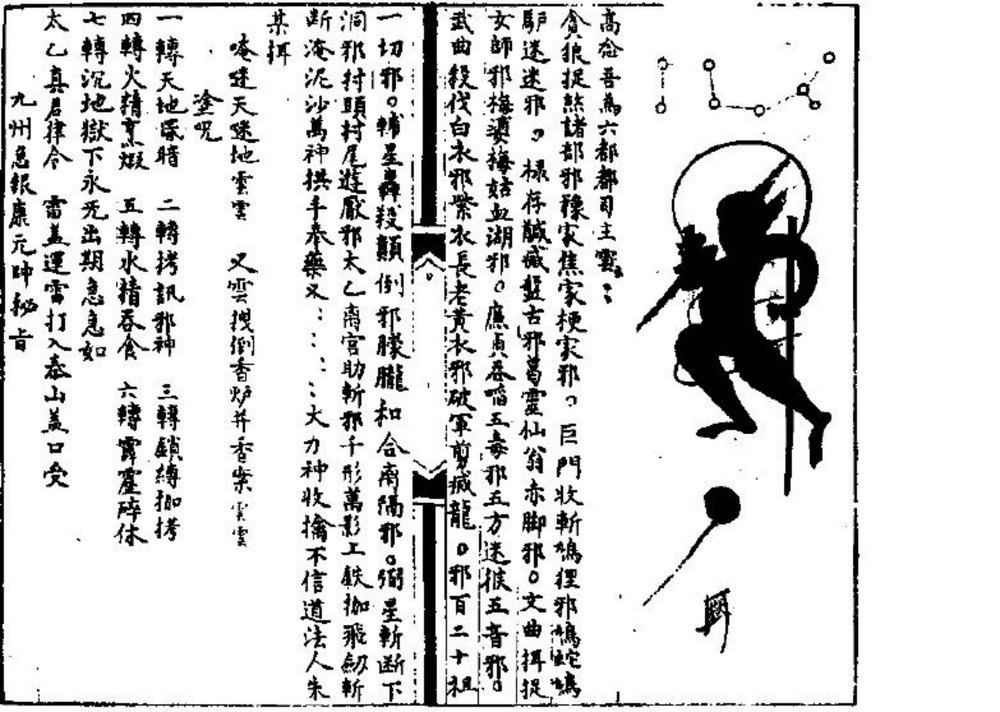 高念吾為六都都司主雲云：
貪狼捉煞諸部邪豫家焦家梗家邪。巨門收斬鳩狸邪鳩蛇鳩
馿迷迷邪。祿存馘滅盤古邪葛靈仙翁赤脚邪。文曲拜捉
女師邪梅婆梅姑血湖邪。廉貞吞啗五毒邪五方迷猴五音邪。
武曲殺伐白衣邪紫衣長老黃衣邪破軍剪滅龍。邪百二十祖
一切邪。輔星轟殺顛倒邪朦朧和合离隔邪。弼星斬断下
洞邪村頭村尾遊厭邪太乙离宮助斬邪千形萬影工鉄枷飛劍斬
断淹泥沙萬神拱手奉藥叉：：：大力神收擒不信道法人朱
某拜
唵迷天迷地雲雲　又雲拽倒香炉并香案雲雲
塗呪
一轉天地昏暗　二轉拷訊邪神　三轉鎖縛枷拷
四轉火精烹煅　五轉水精吞食　六轉霹靂碎体
七轉沉地獄下永无出期急急如
太乙真君律令　雷盖運雷打入泰山盖口受
九州急報康元帥秘旨